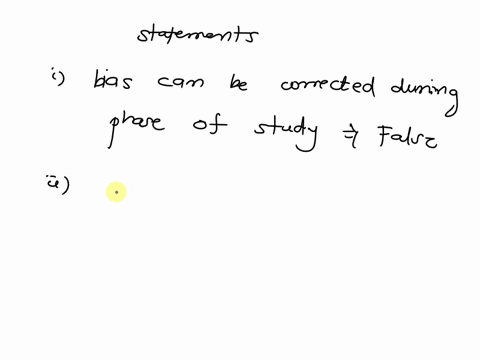 statements
i) bias can be corrected during
phase of study ⇒ False
ii)